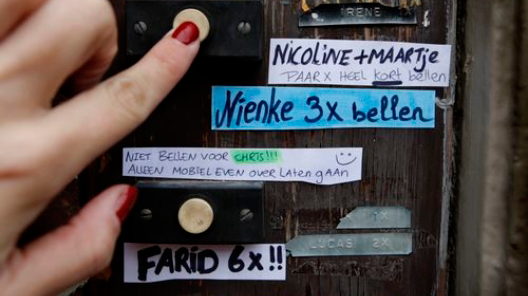 IRENE
NICOLINE + MAARTJE
PAAR X HEEL KORT bellen
Nienke 3x bellen
NIET BELLEN VOOR CHRIS!!!
ALLEEN MOBIEL EVEN OVER LATEN GAAN
1x
LUCAS 2x
FARID 6x!!